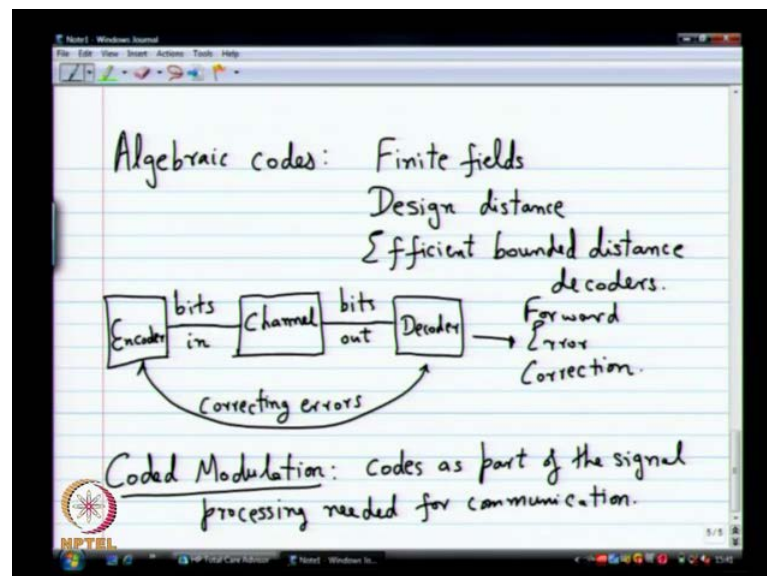 Note1 - Windows Journal
File Edit View Insert Actions Tools Help
Algebraic codes: Finite fields
Design distance
Efficient bounded distance
decoders.
Encoder bits in Channel bits out Decoder → Forward
Error
Correction.
Correcting errors
Coded Modulation: codes as part of the signal
processing needed for communication.
5/5
NPTEL
HP Total Care Advisor Note1 - Windows Jo... 15:41